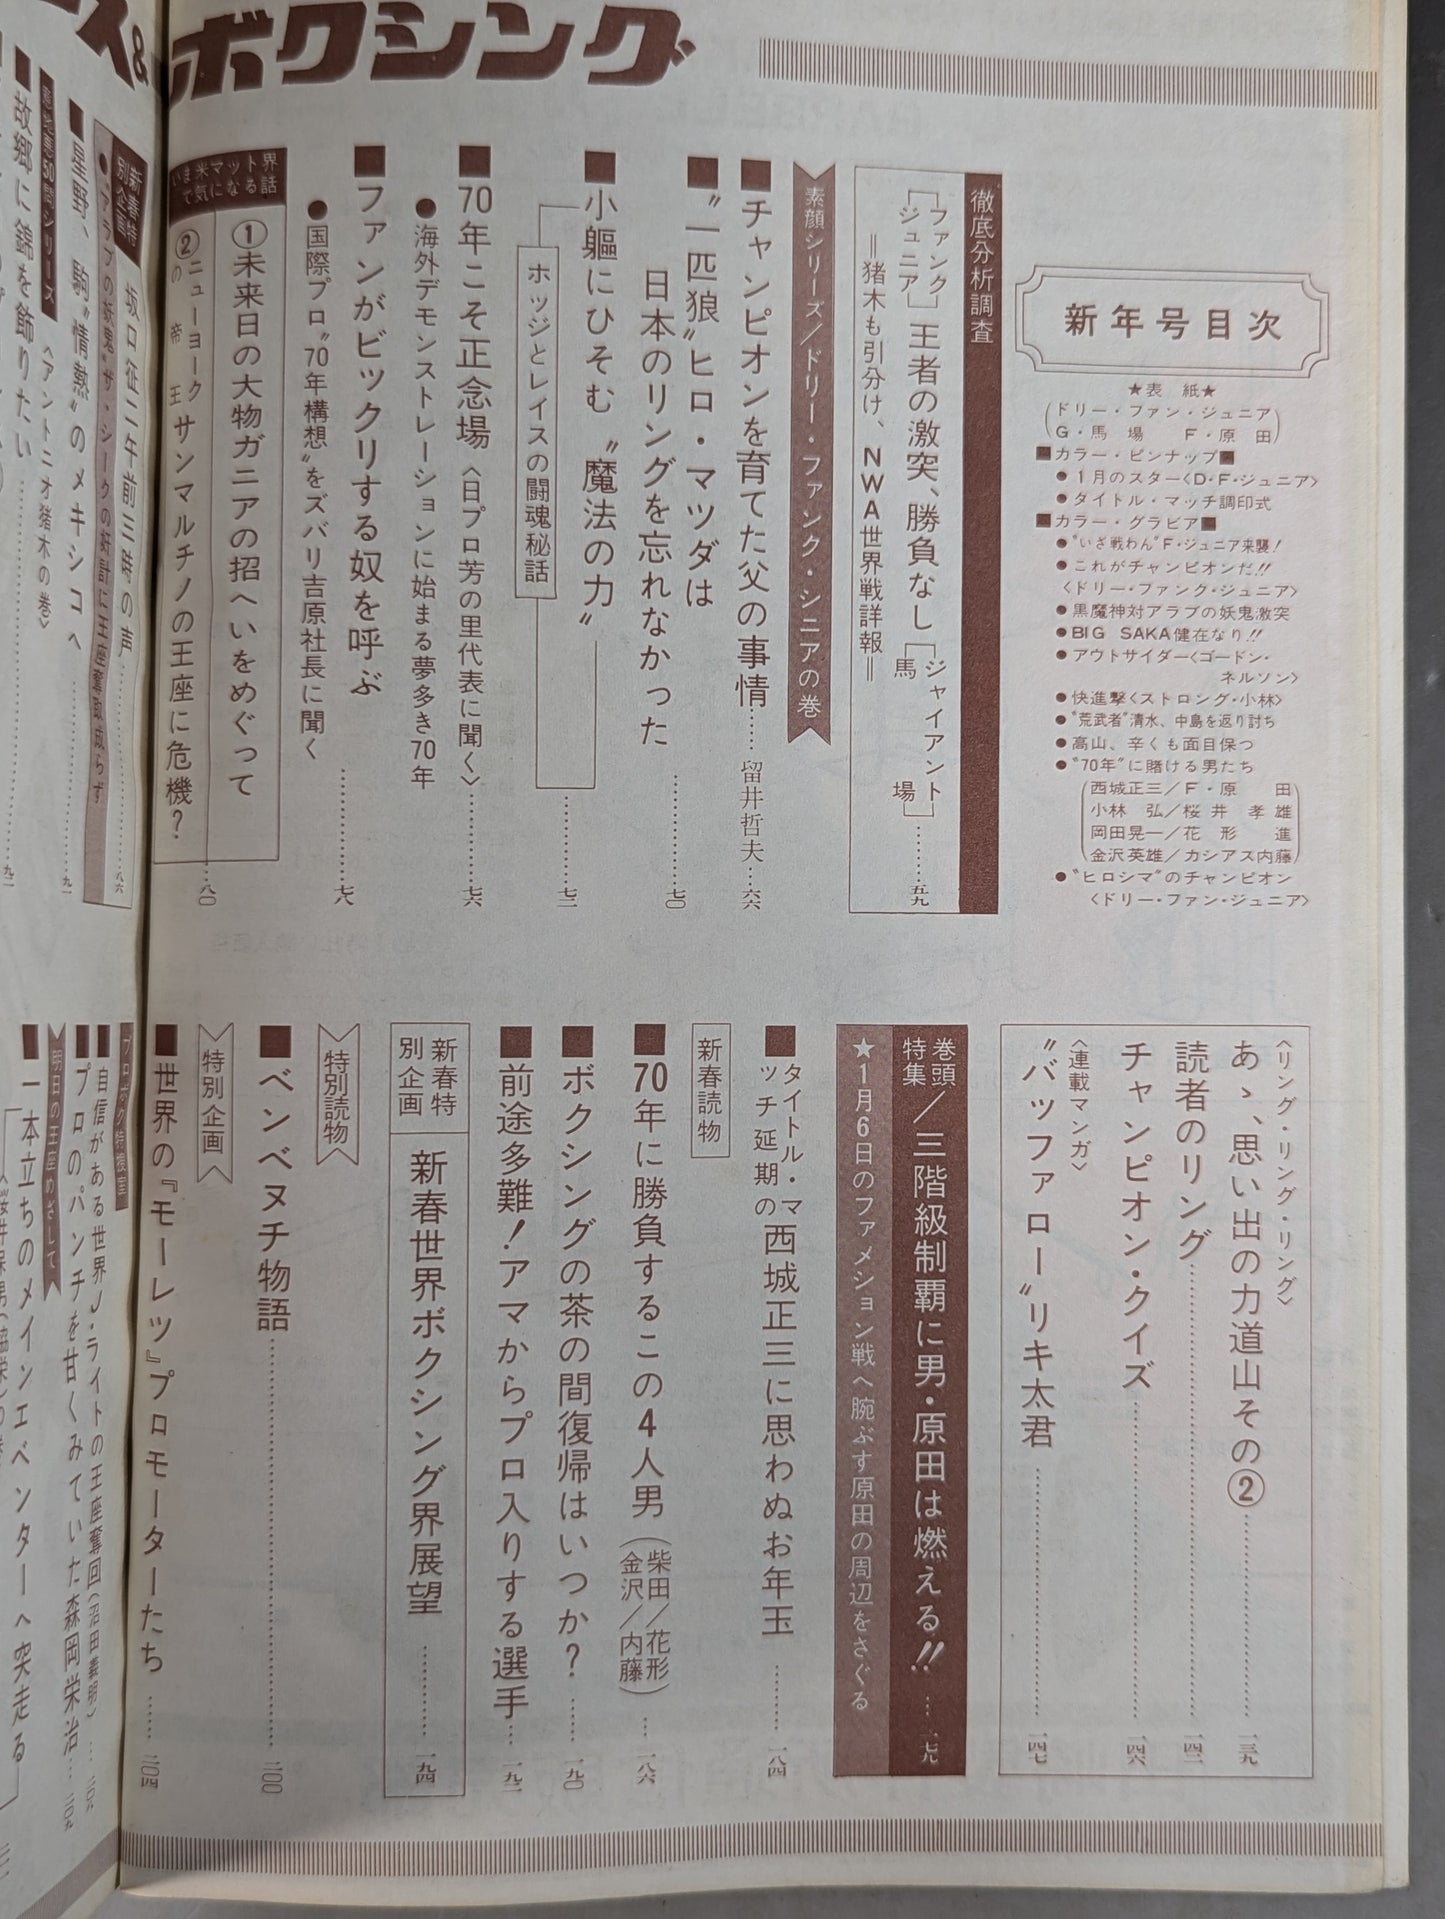 ス&ボクシング
新年号目次
★表紙★
(ドリー・ファン・ジュニア
G・馬場 F・原田)
■カラー・ピンナップ■
●1月のスター〈D・F・ジュニア〉
●タイトル・マッチ調印式
■カラー・グラビア■
●〝いざ戦わん〟F・ジュニア来襲!
●これがチャンピオンだ!!
〈ドリー・ファンク・ジュニア〉
●黒魔神対アラブの妖鬼激突
●BIG SAKA健在なり!!
●アウトサイダー〈ゴードン・
ネルソン〉
●快進撃〈ストロング・小林〉
●〝荒武者〟清水、中島を返り討ち
●高山、辛くも面目保つ
●〝70年〟に賭ける男たち
(西城正三/F・原田
小林 弘/桜井孝雄
岡田晃一/花形 進
金沢英雄/カシアス内藤)
●〝ヒロシマ〟のチャンピオン
〈ドリー・ファン・ジュニア〉
徹底分析調査
[ファンク ジュニア]王者の激突、勝負なし[ジャイアント 馬場]……五九
=猪木も引分け、NWA世界戦詳報=
素顔シリーズ/ドリー・ファンク・シニアの巻
■チャンピオンを育てた父の事情……留井哲夫…六六
■〝一匹狼〟ヒロ・マツダは
日本のリングを忘れなかった……七〇
■小軀にひそむ〝魔法の力〟……七二
ホッジとレイスの闘魂秘話
■70年こそ正念場〈日プロ芳の里代表に聞く〉……七六
●海外デモンストレーションに始まる夢多き70年
■ファンがビックリする奴を呼ぶ……七八
●国際プロ〝70年構想〟をズバリ吉原社長に聞く
いま米マット界で気になる話
①未来日の大物ガニアの招へいをめぐって
②ニューヨークの帝王サンマルチノの王座に危機?……八〇
新春特別企画
坂口征二午前三時の声……八六
●〝アラブの妖鬼〟ザ・シークの奸計に王座奪取成らず
■星野、駒〝情熱〟のメキシコへ……九一
50問シリーズ
〈アントニオ猪木の巻〉
■故郷に錦を飾りたい
〈リング・リング・リング〉
あゝ、思い出の力道山その②……一三九
読者のリング……一四二
チャンピオン・クイズ……一四六
〈連載マンガ〉
〝バッファロー〟リキ太君……一四七
巻頭特集/三階級制覇に男・原田は燃える!!……一七九
★1月6日のファメション戦へ腕ぶす原田の周辺をさぐる
■タイトル・マッチ延期の西城正三に思わぬお年玉……一八四
新春読物
■70年に勝負するこの4人男(柴田/花形 金沢/内藤)…一八六
■ボクシングの茶の間復帰はいつか?……一九〇
■前途多難!アマからプロ入りする選手…一九二
新春特別企画
新春世界ボクシング界展望……一九四
特別読物
■ベンベヌチ物語……二〇〇
特別企画
■世界の『モーレツ』プロモーターたち……二〇四
プロボク特捜室
■自信がある世界J・ライトの王座奪回(沼田義明)…二〇六
■プロのパンチを甘くみていた森岡栄治…二〇九
明日の王座めざして
■一本立ちのメインエベンターへ突走る